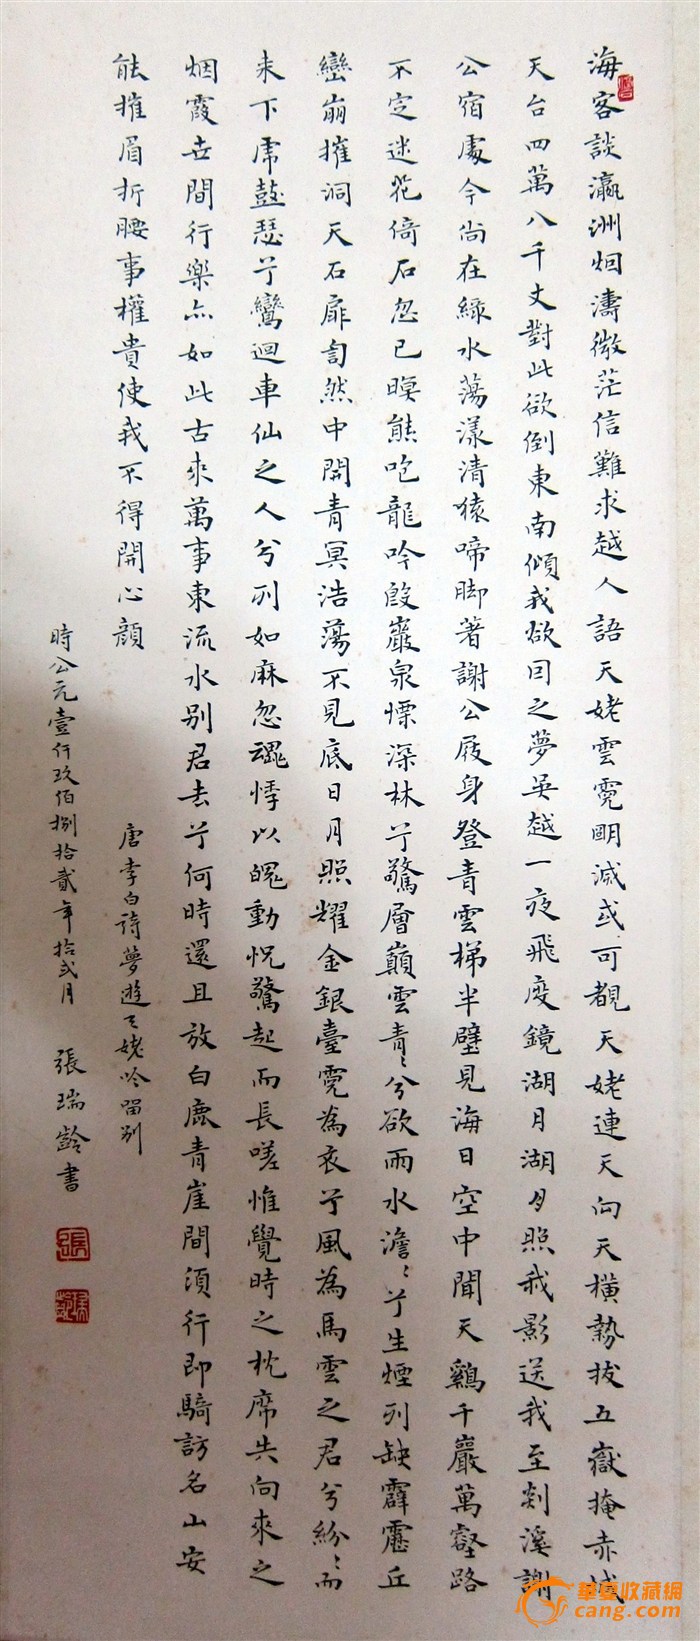 海客談瀛洲烟濤微茫信難求越人語天姥雲霓明滅或可覩天姥連天向天橫勢拔五嶽掩赤城
天台四萬八千丈對此欲倒東南傾我欲因之夢吳越一夜飛度鏡湖月湖月照我影送我至剡溪謝
公宿處今尚在綠水蕩漾清猿啼脚著謝公屐身登青雲梯半壁見海日空中聞天鷄千巖萬壑路
不定迷花倚石忽已暝熊咆龍吟殷巖泉慄深林兮驚層巔雲青〻兮欲雨水澹〻兮生煙列缺霹靂丘
巒崩摧洞天石扉訇然中開青冥浩蕩不見底日月照耀金銀臺霓為衣兮風為馬雲之君兮紛〻而
来下虎鼓瑟兮鸞迴車仙之人兮列如麻忽魂悸以魄動怳驚起而長嗟惟覺時之枕席失向來之
烟霞世間行樂亦如此古來萬事東流水別君去兮何時還且放白鹿青崖間須行即騎訪名山安
能摧眉折腰事權貴使我不得開心顏
唐李白詩夢遊天姥吟留别
時公元壹仟玖佰捌拾貳年拾弍月 張瑞齡書
張
華夏收藏網
cang.com